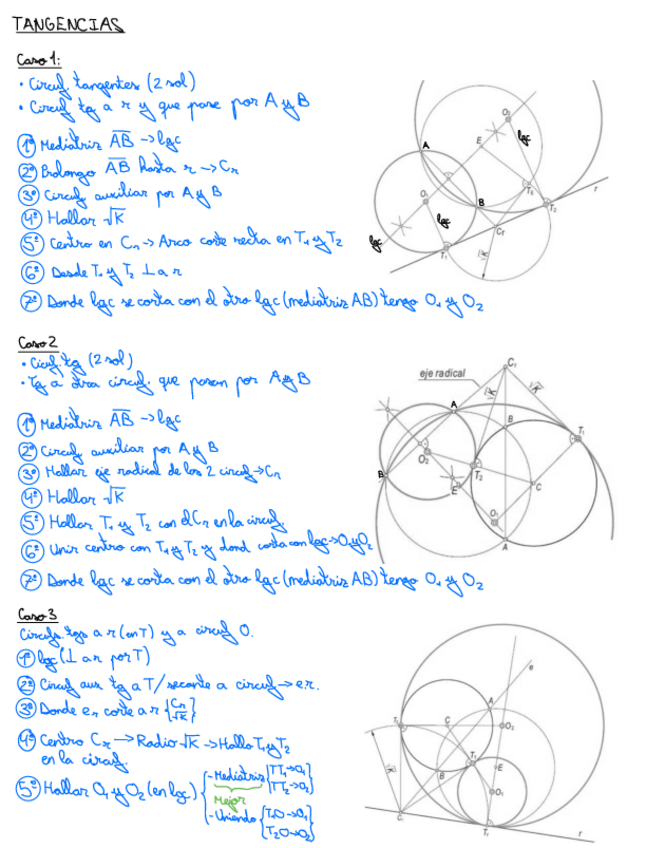 TANGENCIAS
Caso 1:
• Circuf. tangentes (2 sol)
• Circuf tg a r y que pase por A y B
1º Mediatriz AB → lgc
2º Prolongo AB hasta r → Cr
3º Circuf auxiliar por A y B
4º Hallar √K
5º Centro en Cr → Arco corte recta en T1 y T2
6º Desde T1 y T2 ⊥ a r
7º Donde lgc se corta con el otro lgc (mediatriz AB) tengo O1 y O2
A
E
O2
lgc
O1
B
lgc
T2
r
lgc
T1
Cr
√K
Caso 2
• Circuf. tg (2 sol)
• Tg a otra circuf. que pasen por A y B
1º Mediatriz AB → lgc
2º Circuf auxiliar por A y B
3º Hallar eje radical de los 2 circuf → Cr
4º Hallar √K
5º Hallar T1 y T2 con el Cr en la circuf.
6º Unir centro con T1 y T2 y dond corta con lgc → O1 y O2
7º Donde lgc se corta con el otro lgc (mediatriz AB) tengo O1 y O2
eje radical
Cr
√K
√K
A
B
T1
O2
T2
B
E
C
O1
A
Caso 3
Circufs. tgs a r (en T) y a circuf O.
1º lgc (⊥ a r por T)
2º Circuf aux tg a T / secante a circuf → er.
3º Donde er corte a r {Cr √K}
4º Centro Cr → Radio √K → Hallo T1 y T2
en la circuf.
5º Hallar O1 y O2 (en lgc)
- Mediatriz {TT1→O1
TT2→O2}
Mejor
- Uniendo {T1O→O1
T2O→O2}
e
A
C
O2
B
E
√K
O1
r